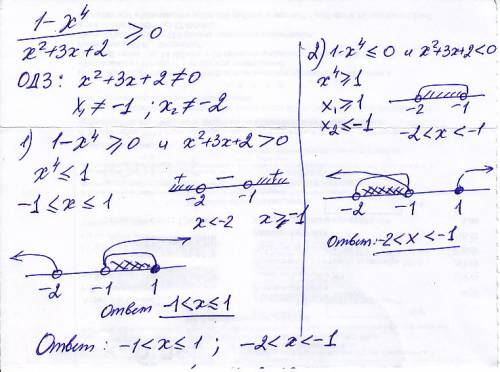 (1-x⁴)/(x²+3x+2) ≥ 0
ОДЗ: x²+3x+2≠0
x₁≠-1 ; x₂≠-2
1) 1-x⁴ ≥ 0 и x²+3x+2>0
x⁴ ≤ 1
-1 ≤ x ≤ 1
+ − +
-2 -1
x<-2 x>-1
-2 -1 1
Ответ -1<x≤1
2) 1-x⁴ ≤ 0 и x²+3x+2<0
x⁴ ≥ 1
x₁ ≥ 1
x₂ ≤ -1
-2 -1
-2<x<-1
-2 -1 1
Ответ: -2<x<-1
Ответ: -1<x≤1 ; -2<x<-1